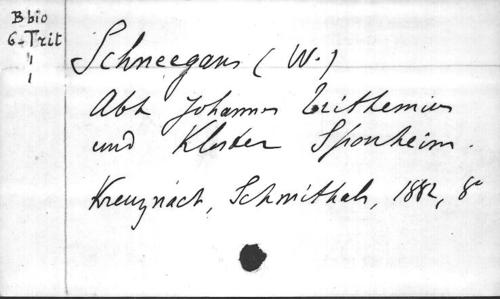 B bio
6-Trit
"
1
Schneegans (W.)
Abt Johannes Trithemius
und Kloster Sponheim.
Kreuznach, Schmithals, 1882, 8°